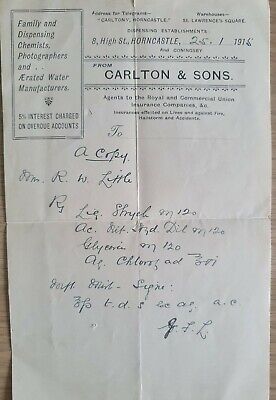 Family and
Dispensing
Chemists,
Photographers
and . .
Ærated Water
Manufacturers.
5% INTEREST CHARGED
ON OVERDUE ACCOUNTS
Address for Telegrams—
"CARLTON", HORNCASTLE.
Warehouses—
ST. LAWRENCE'S SQUARE.
DISPENSING ESTABLISHMENTS
8, High St., HORNCASTLE, 25. 1 1915
And CONINGSBY
FROM
CARLTON & SONS.
Agents to the Royal and Commercial Union
Insurance Companies, &c.
Insurances effected on Lives and against Fire,
Hailstorm and Accidents.
To
A Copy
R. W. Little
Liq. Strych m 120
Ac. Nit. Hyd Dil m 120
Glycerin m 120
Aq. Chlorof ad
t. d. s ex aq. a. c.